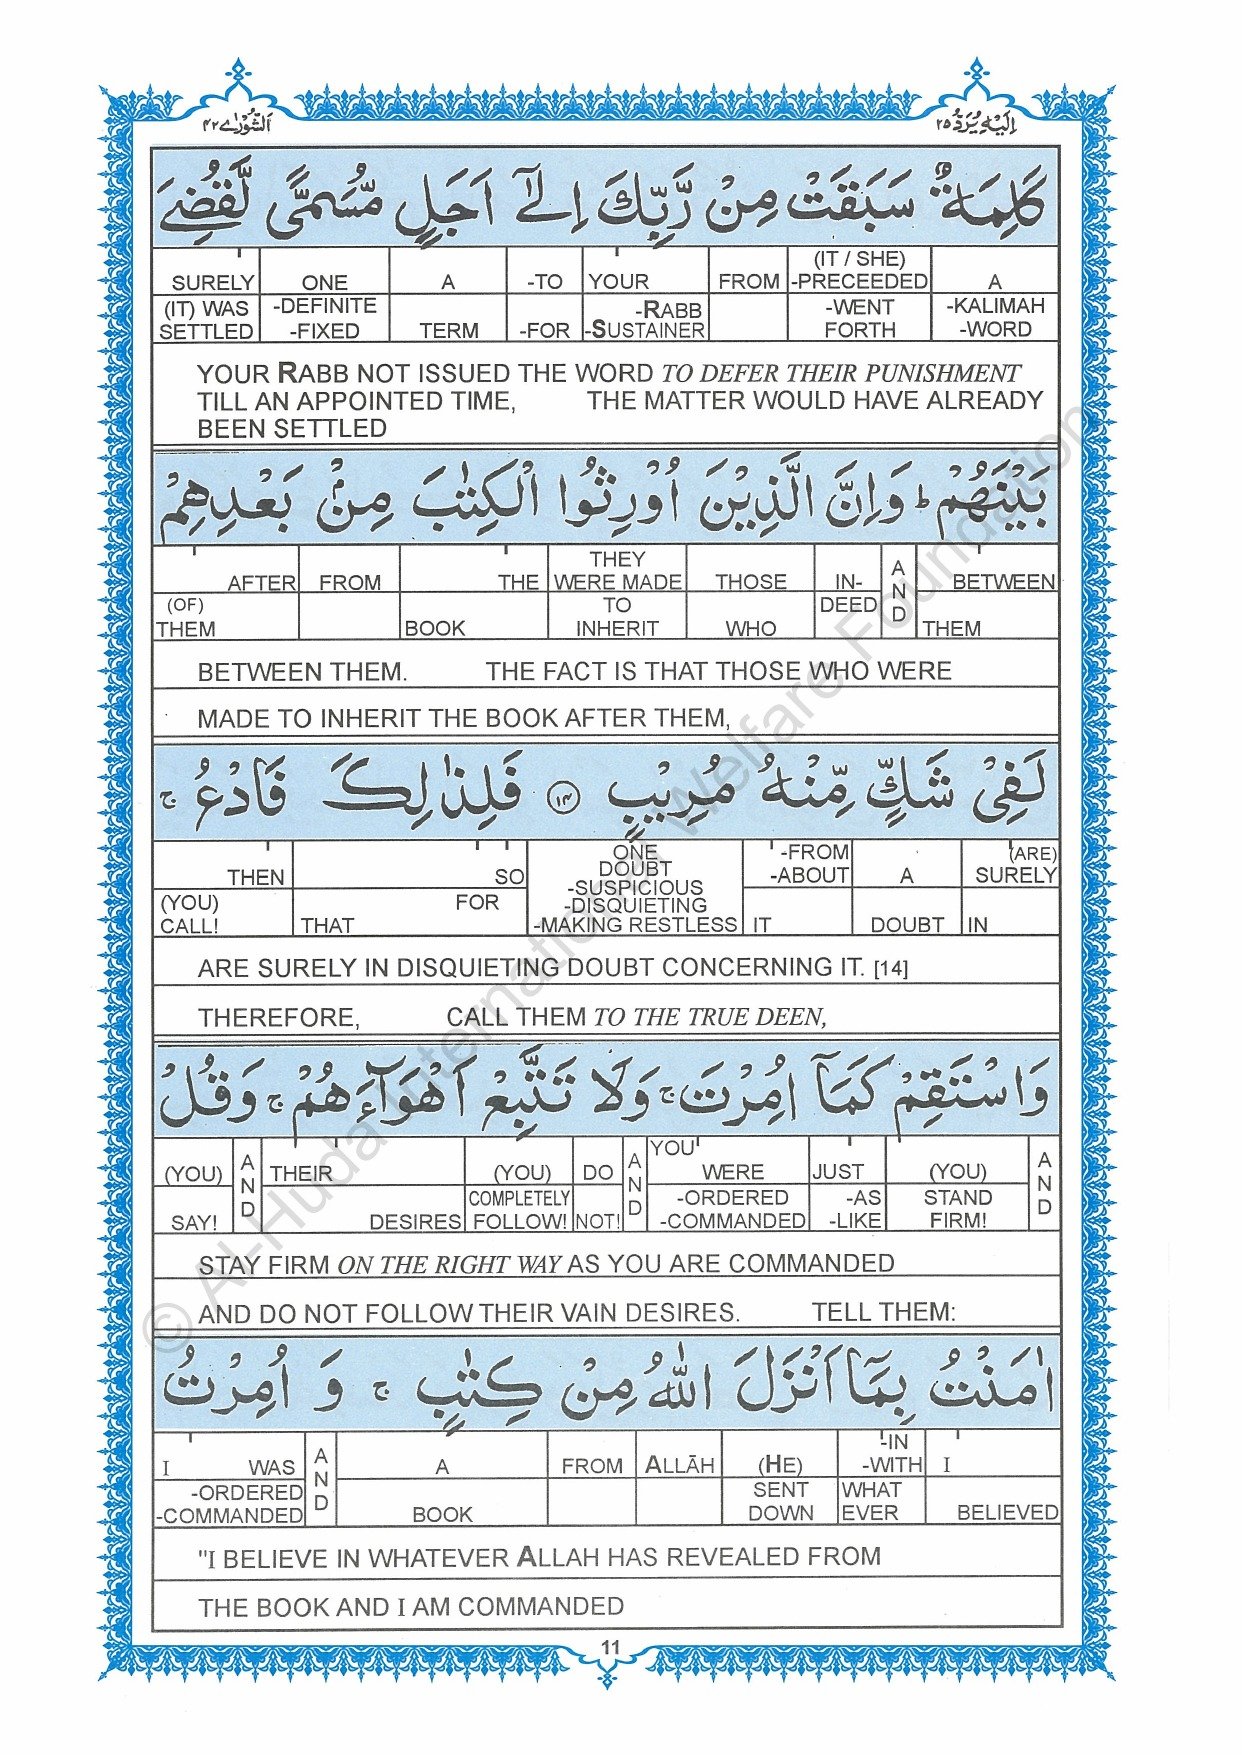 الشورى ٤٢
اليه يرد ٢٥
كَلِمَةٌ سَبَقَتْ مِنْ رَّبِّكَ اِلٰٓى اَجَلٍ مُّسَمًّى لَّقُضِىَ
SURELY ONE A -TO YOUR FROM (IT / SHE) -PRECEEDED A
(IT) WAS SETTLED -DEFINITE -FIXED TERM -FOR -RABB -SUSTAINER -WENT FORTH -KALIMAH -WORD
YOUR RABB NOT ISSUED THE WORD TO DEFER THEIR PUNISHMENT
TILL AN APPOINTED TIME, THE MATTER WOULD HAVE ALREADY
BEEN SETTLED
بَيْنَهُمْ ؕ وَاِنَّ الَّذِيْنَ اُوْرِثُوا الْكِتٰبَ مِنْۢ بَعْدِهِمْ
AFTER FROM THE THEY WERE MADE THOSE IN- AND BETWEEN
(OF) THEM BOOK TO INHERIT WHO DEED THEM
BETWEEN THEM. THE FACT IS THAT THOSE WHO WERE
MADE TO INHERIT THE BOOK AFTER THEM,
لَفِىْ شَكٍّ مِّنْهُ مُرِيْبٍ ۱۴ فَلِذٰلِكَ فَادْعُ ۚ
THEN SO ONE DOUBT -SUSPICIOUS -DISQUIETING -MAKING RESTLESS -FROM -ABOUT A (ARE) SURELY
(YOU) CALL! FOR THAT IT DOUBT IN
ARE SURELY IN DISQUIETING DOUBT CONCERNING IT. [14]
THEREFORE, CALL THEM TO THE TRUE DEEN,
وَاسْتَقِمْ كَمَآ اُمِرْتَ ۚ وَلَا تَتَّبِعْ اَهْوَآءَهُمْ ۚ وَقُلْ
(YOU) AND THEIR (YOU) DO AND YOU WERE JUST (YOU) AND
SAY! DESIRES COMPLETELY FOLLOW! NOT! -ORDERED -COMMANDED -AS -LIKE STAND FIRM!
STAY FIRM ON THE RIGHT WAY AS YOU ARE COMMANDED
AND DO NOT FOLLOW THEIR VAIN DESIRES. TELL THEM:
اٰمَنْتُ بِمَآ اَنْزَلَ اللّٰهُ مِنْ كِتٰبٍ ۚ وَ اُمِرْتُ
I WAS AND A FROM ALLĀH (HE) -IN -WITH I
-ORDERED -COMMANDED BOOK SENT DOWN WHAT EVER BELIEVED
"I BELIEVE IN WHATEVER ALLAH HAS REVEALED FROM
THE BOOK AND I AM COMMANDED
11
© Al-Huda International Welfare Foundation